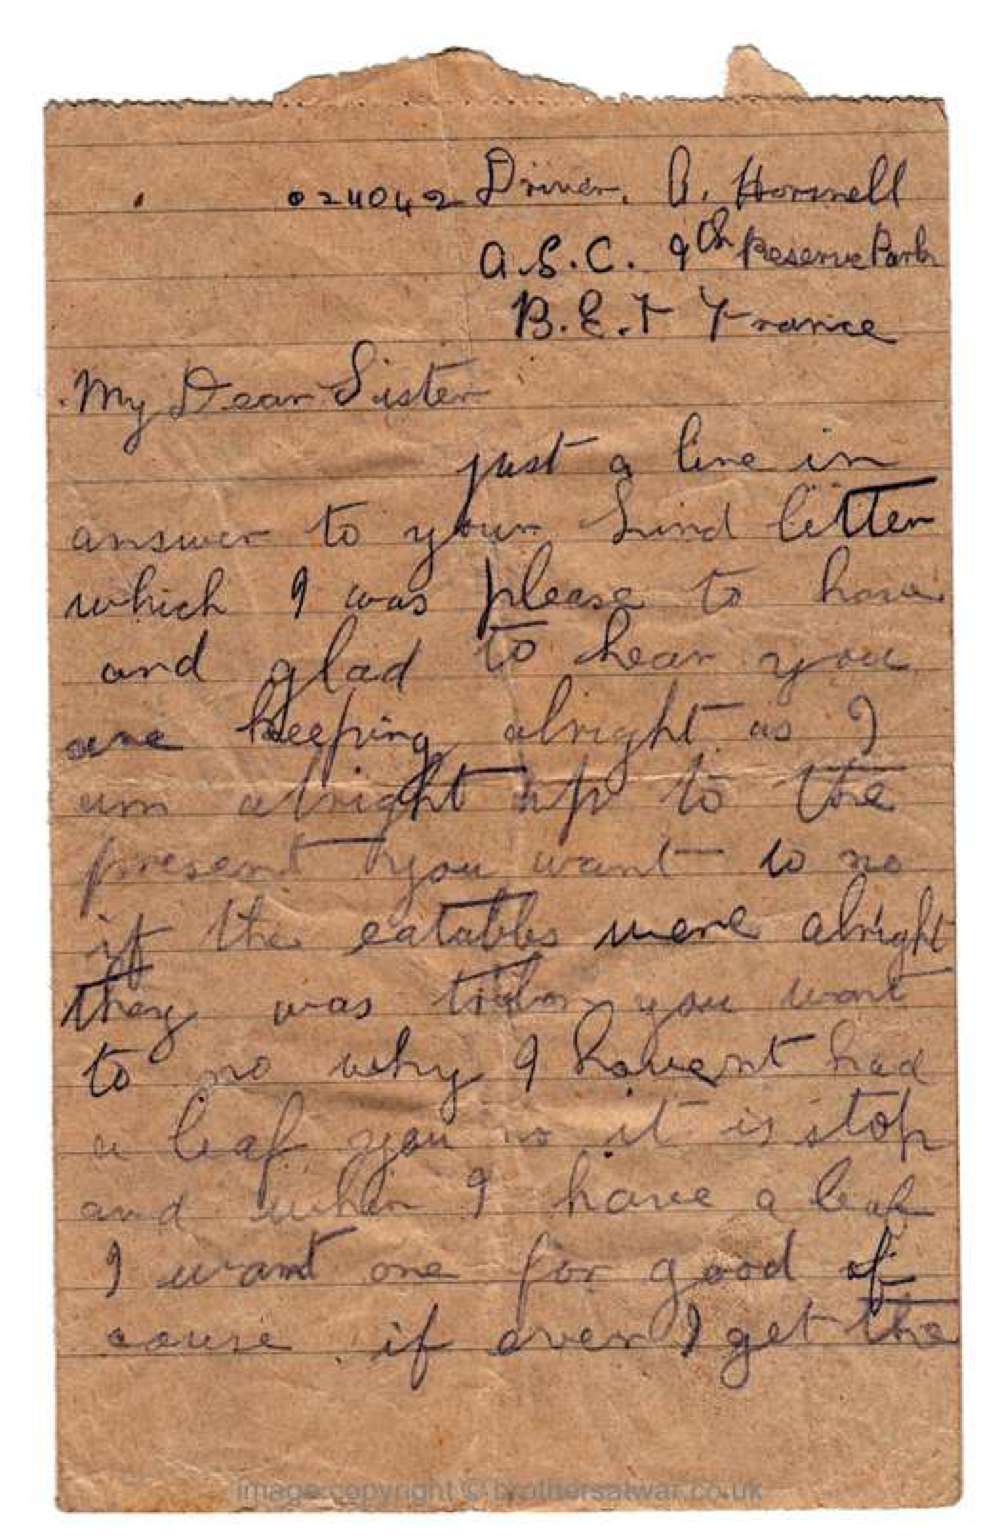 024042 Driver. A. Horsnell
A.S.C. 9th Reserve Park
B.E.F France
My Dear Sister
just a line in
answer to your kind letter
which I was please to have
and glad to hear you
are keeping alright as I
am alright up to the
present you want to no
if the eatables were alright
they was you want
to no why I havent had
a leaf you no it is stop
and when I have a leaf
I want one for good of
couse if ever I get the
image copyright © brothersatwar.co.uk